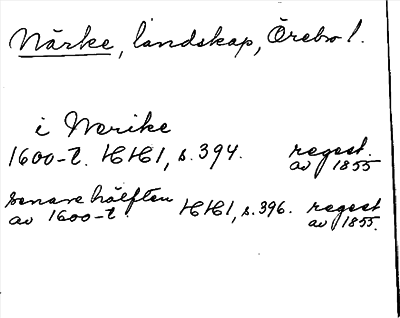 Närke, landskap, Örebro l.
i Nerike
1600-t. HH1, s. 394. regest. av 1855
senare hälften av 1600-t HH1, s. 396. regest av 1855.